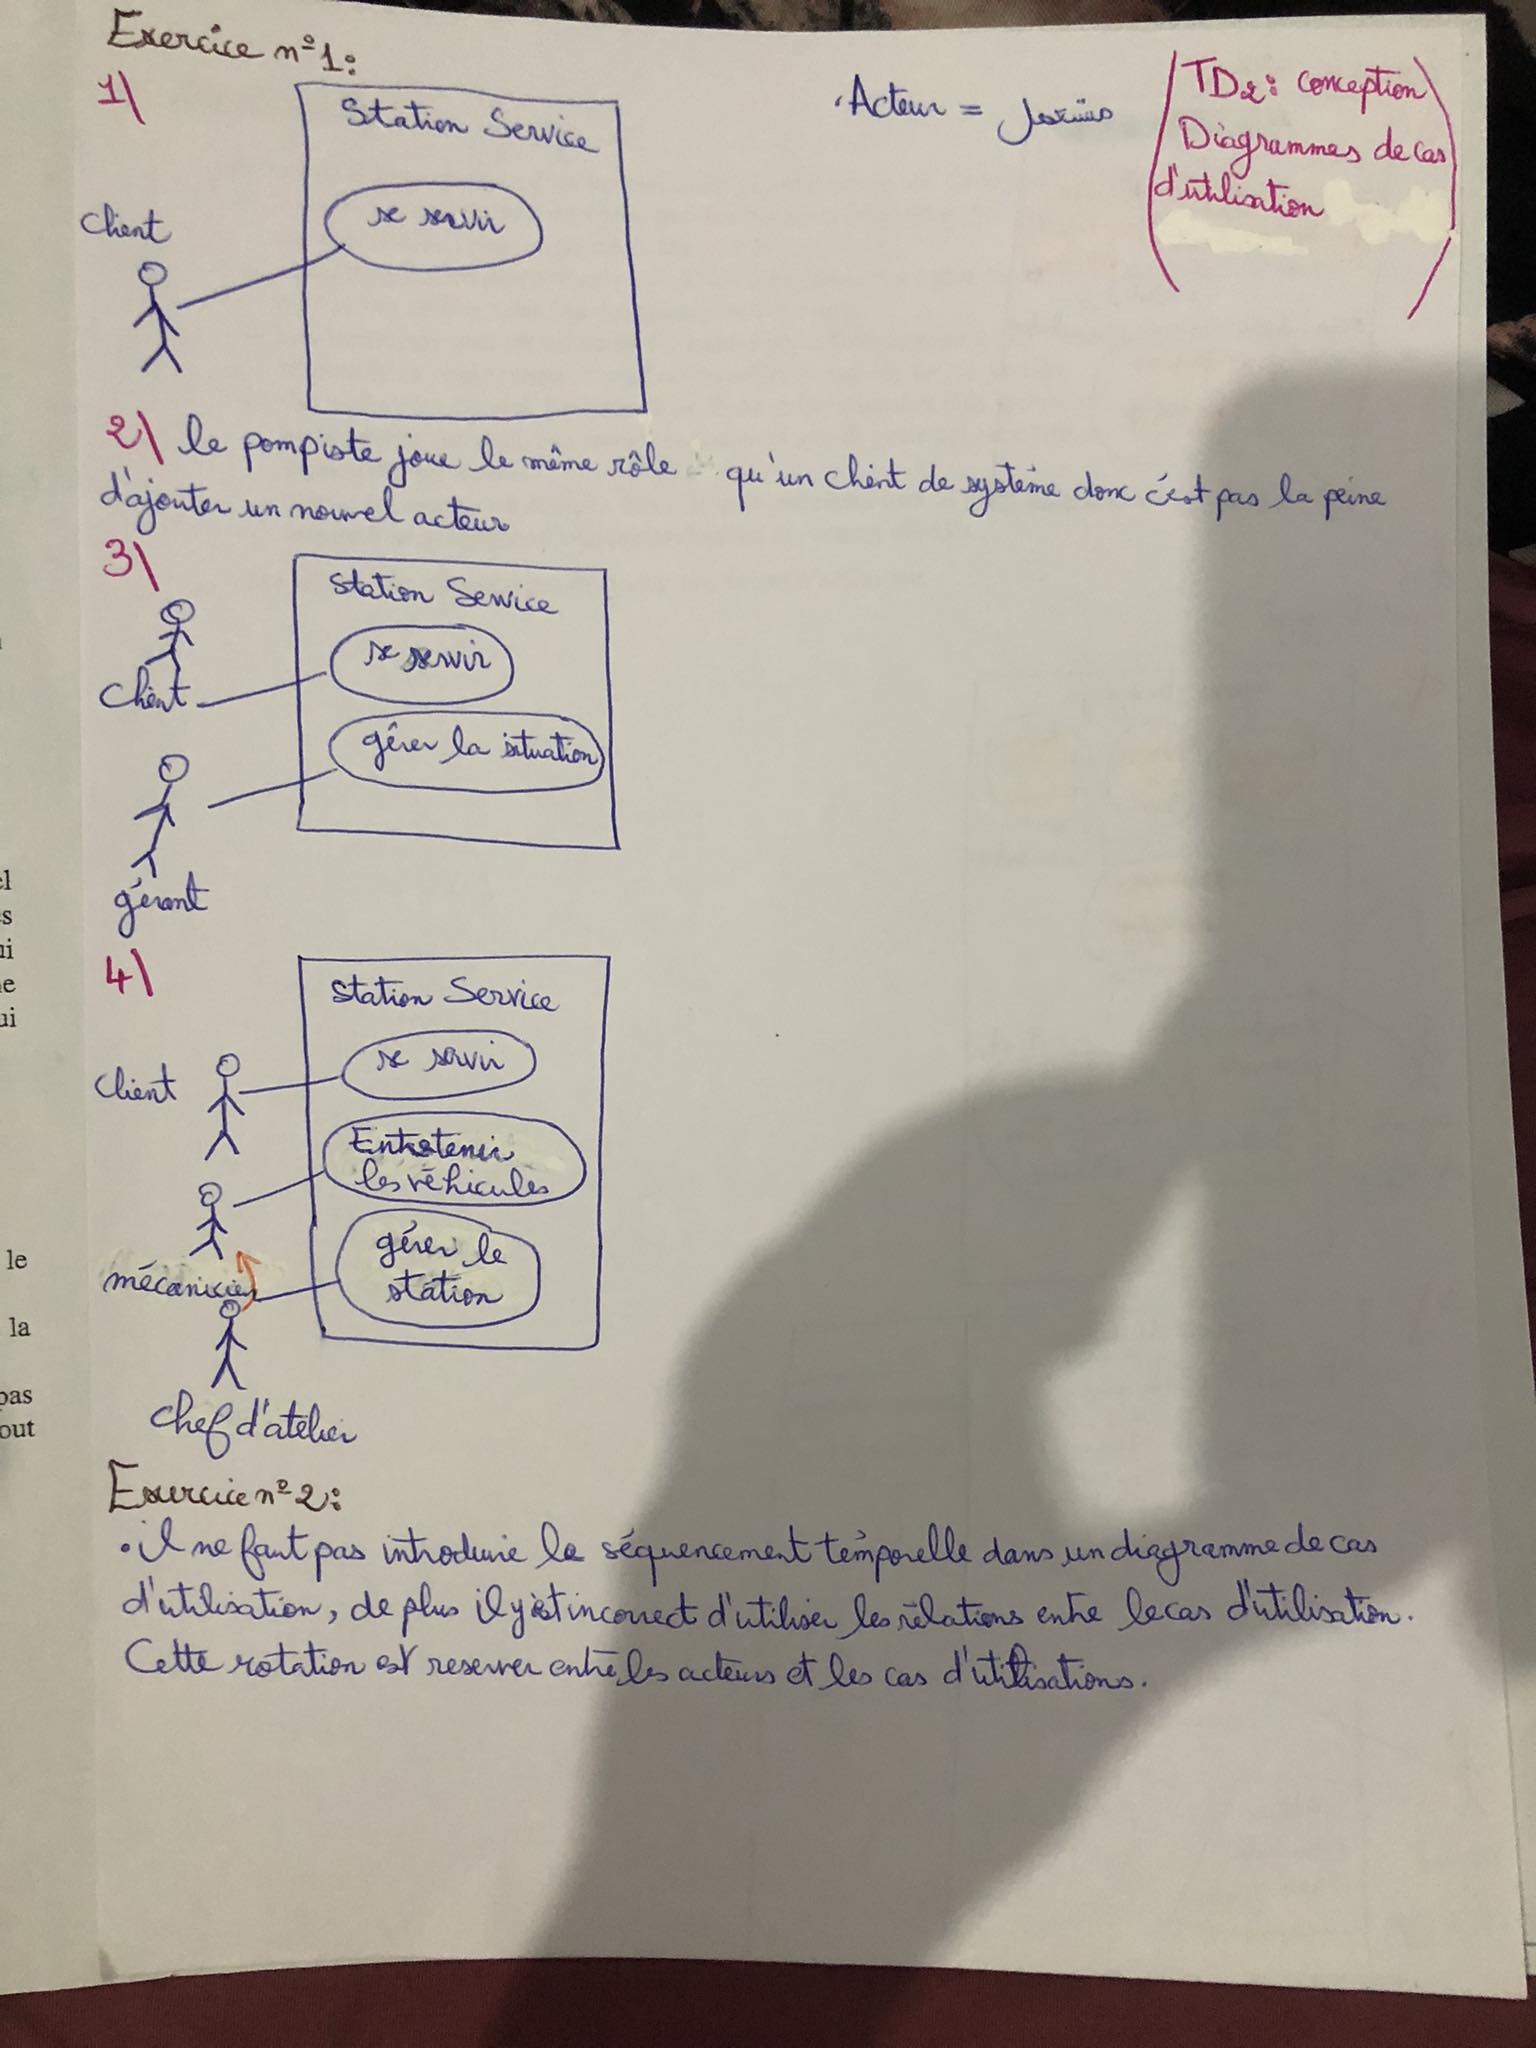 Exercice n°1:
TD2: conception
Diagrammes de cas
d'utilisation
1\
Station Service
Acteur =
client
se servir
2\ le pompiste joue le même rôle qu'un client de système donc c'est pas la peine
d'ajouter un nouvel acteur
3\
Station Service
se servir
client
gérer la situation
gérant
4\
Station Service
client
se servir
Entretenir
les véhicules
mécanicien
gérer le
station
chef d'atelier
Exercice n°2:
• il ne faut pas introduire le séquencement temporelle dans un diagramme de cas
d'utilisation, de plus il y est incorrect d'utiliser les rélations entre le cas d'utilisation.
Cette rotation est reserver entre les acteurs et les cas d'utilisations.
el
es
ui
ne
ui
le
la
pas
out